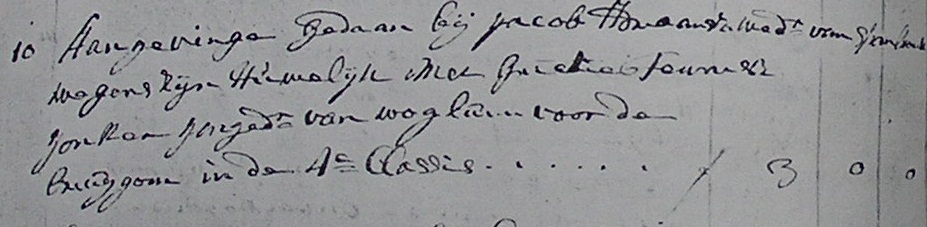 10 Aangevinge Gedaan bij Jacob wedr van
wegens zijn Huwelijk Met Grietie Teunis
Jonker Jongedr van woglum voor de
bruijgom in de 4e Classis . . . . . . ƒ 3 0 0